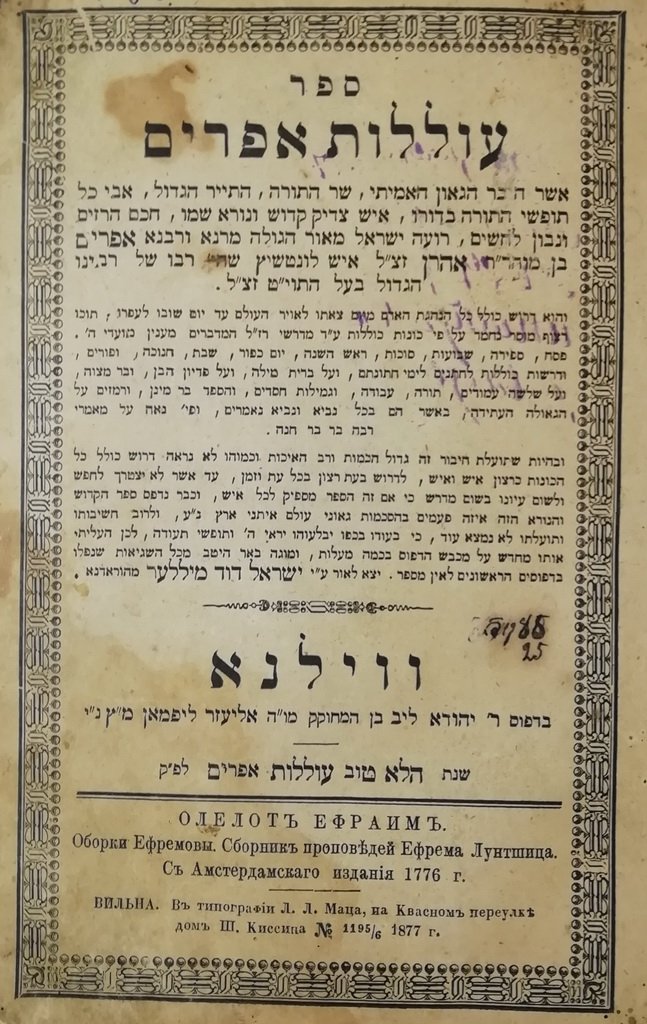 ספר
עוללות אפרים
אשר חבר הגאון האמיתי, שר התורה, התייר הגדול, אבי כל
תופשי התורה בדורו, איש צדיק קדוש ונורא שמו, חכם הרזים
ונבון לחשים, רועה ישראל מאור הגולה מרנא ורבנא אפרים
בן מוהר״ר אהרן זצ״ל איש לונטשיץ שהי׳ רבו של רבינו
הגדול בעל התוי״ט זצ״ל.
והוא דרוש כולל כל הנהגת האדם מיום צאתו לאויר העולם עד יום שובו לעפרו, תוכו
רצוף מוסר נחמד על פי כונות כוללות ע״ד מדרשי רז״ל המדברים מענין מועדי ה׳.
פסח, ספירה, שבועות, סוכות, ראש השנה, יום כפור, שבת, חנוכה, ופורים,
ודרשות כוללות לחתנים לימי חתונתם, ועל ברית מילה, ועל פדיון הבן, ובר מצוה,
ועל שלשה עמודים, תורה, עבודה, וגמילות חסדים, והספד בר מינן, ורמזים על
הגאולה העתידה, באשר הם בכל נביא ונביא נאמרים, ופי׳ נאה על מאמרי
רבה בר בר חנה.
ובהיות שתועלת חיבור זה גדול הכמות ורב האיכות וכמוהו לא נראה דרוש כולל כל
הכונות כרצון איש ואיש, לדרוש בעת רצון בכל עת וזמן, עד אשר לא יצטרך לחפש
ולשום עיונו בשום מדרש כי אם זה הספר מספיק לכל איש, וכבר נדפס ספר הקדוש
והנורא הזה איזה פעמים בהסכמות גאוני עולם איתני ארץ נ״ע, ולרוב חשיבותו
ותועלתו לא נמצא עוד, כי בעודו בכפו יבלעוהו יראי ה׳ ותופשי תעודה, לכן העליתי
אותו מחדש על מכבש הדפוס בכמה מעלות, ומוגה באר היטב מכל השגיאות שנפלו
בדפוסים הראשונים לאין מספר. יצא לאור ע״י ישראל דוד מיללער מהוראדנא.
ווילנא
בדפוס ר׳ יהודא ליב בן המחוקק מו״ה אליעזר ליפמאן מ״ץ נ״י
שנת הלא טוב עוללות אפרים לפ״ק
ОЛЕЛОТЪ ЕФРАИМЪ.
Оборки Ефремовы. Сборникъ проповѣдей Ефрема Лунтшица.
Съ Амстердамскаго изданія 1776 г.
ВИЛЬНА. Въ типографіи Л. Л. Маца, на Квасномъ переулкѣ
домъ Ш. Киссина № 1195/6 1877 г.
25